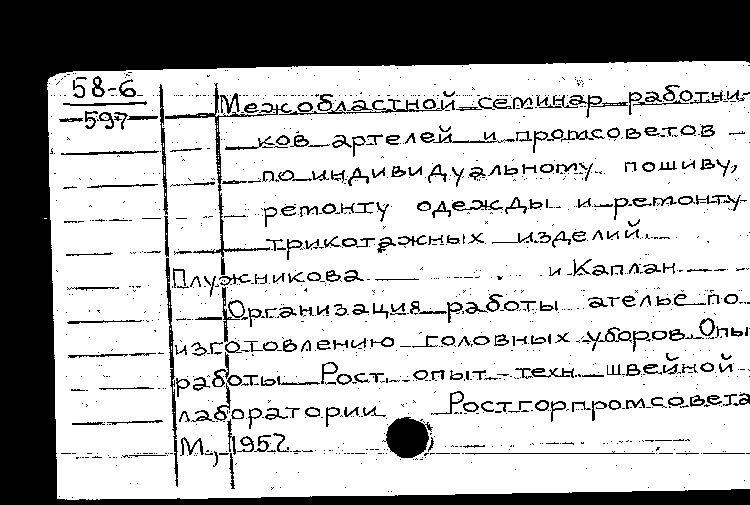 58-6
597
Межобластной семинар работни-
ков артелей и промсоветов
по индивидуальному пошиву,
ремонту одежды и ремонту
трикотажных изделий.
Плужникова и Каплан
Организация работы ателье по
изготовлению головных уборов. Опыт
работы Рост. опыт.-техн. швейной
лаборатории Ростгорпромсовета
М., 1957